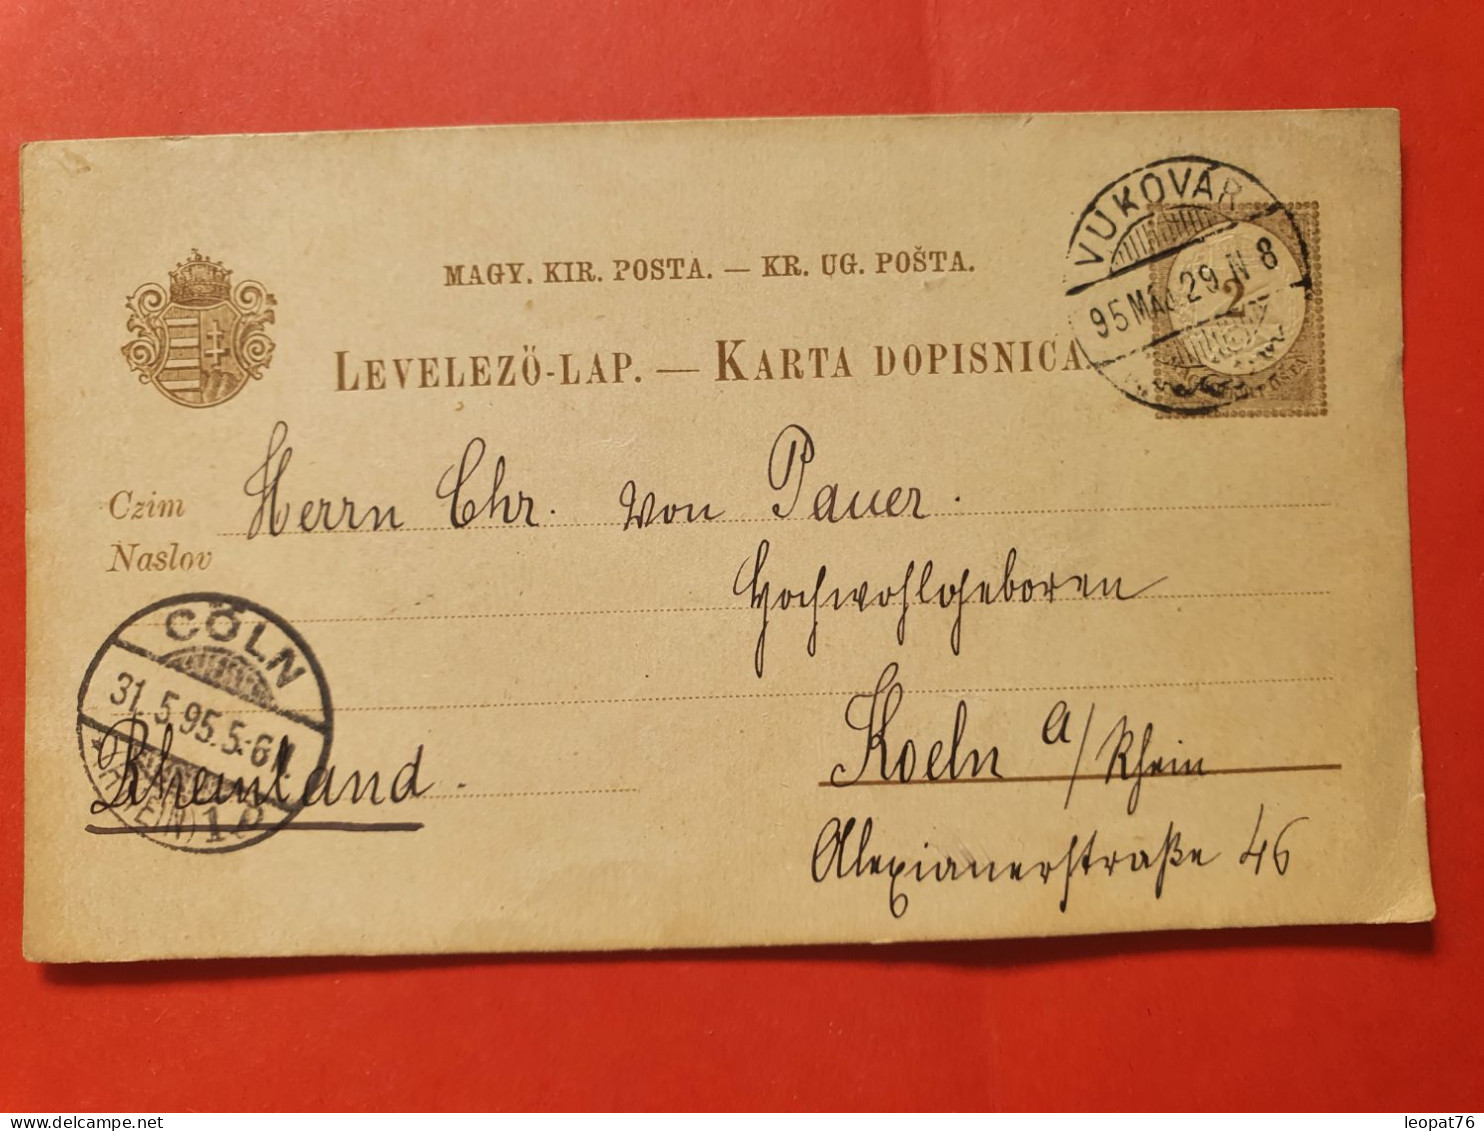 MAGY. KIR. POSTA. — KR. UG. POŠTA.
LEVELEZŐ-LAP. — KARTA DOPISNICA.
VUKOVÁR
95 MÁJ. 29 N 8
2
Czim
Naslov
Herrn Chr. von Pauer.
Hochwohlgeboren
CÖLN
31.5.95.5-6N.
(RHEIN) 12
Koeln a/Rhein
Rheinland.
Alexianerstraße 46
delcampe.net
leopat76